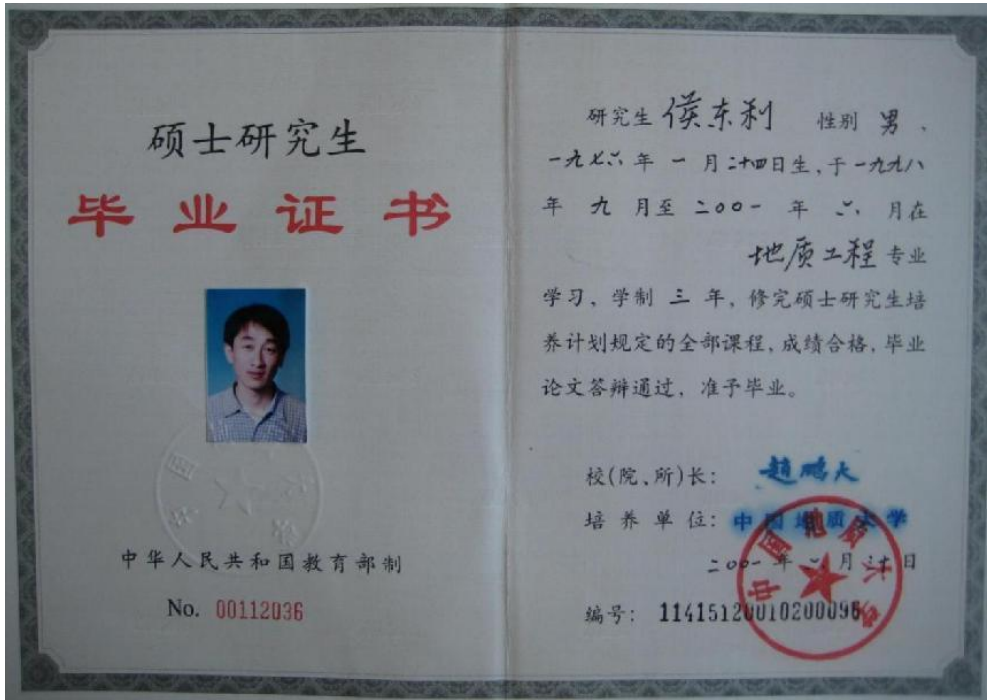 硕士研究生
毕业证书
中华人民共和国教育部制
No. 00112036
研究生 侯东利 性别 男、
一九七六年 一 月二十四日生,于一九九八
年 九 月至 二00一 年 六 月在
地质工程 专业
学习、学制 三 年,修完硕士研究生培
养计划规定的全部课程,成绩合格,毕业
论文答辩通过,准予毕业。
校(院、所)长: 趙鹏大
培养单位: 中国地质大学
二00一年六月 日
编号: 11415120010200096
中国地质大学